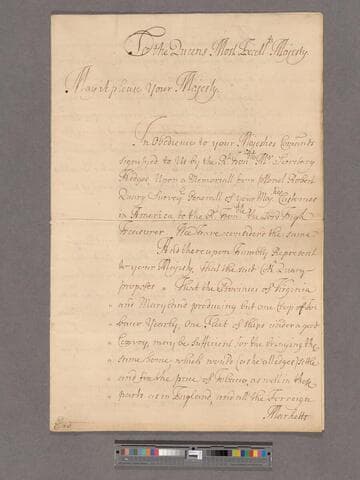 To the Queens Most Excell.t Majesty.
May it please Your Majesty.
In Obedience to your Majesties Com̃ands
signifyed to Us by the R.t hon.ble M.r Secretary
Hedges Upon a Memoriall from Colonel Robert
Quary Survey.r Generall of your Maj.ties Customes
in America, to the R.t hon.ble the Lord high
Treasurer We have considered the same
And thereupon humbly Represent
to your Majesty, that the said Col. Quary
proposes That the Provinces of Virginia
" and Maryland producing but one Crop of To-
" bacco Yearly, One Fleet of Ships under a good
" Convoy, may be sufficient for the bringing the
" same home, which would (as he alledges) settle
" and fix the price of Tobacco, as well in those
" parts as in England, and all the Foreign
Marketts